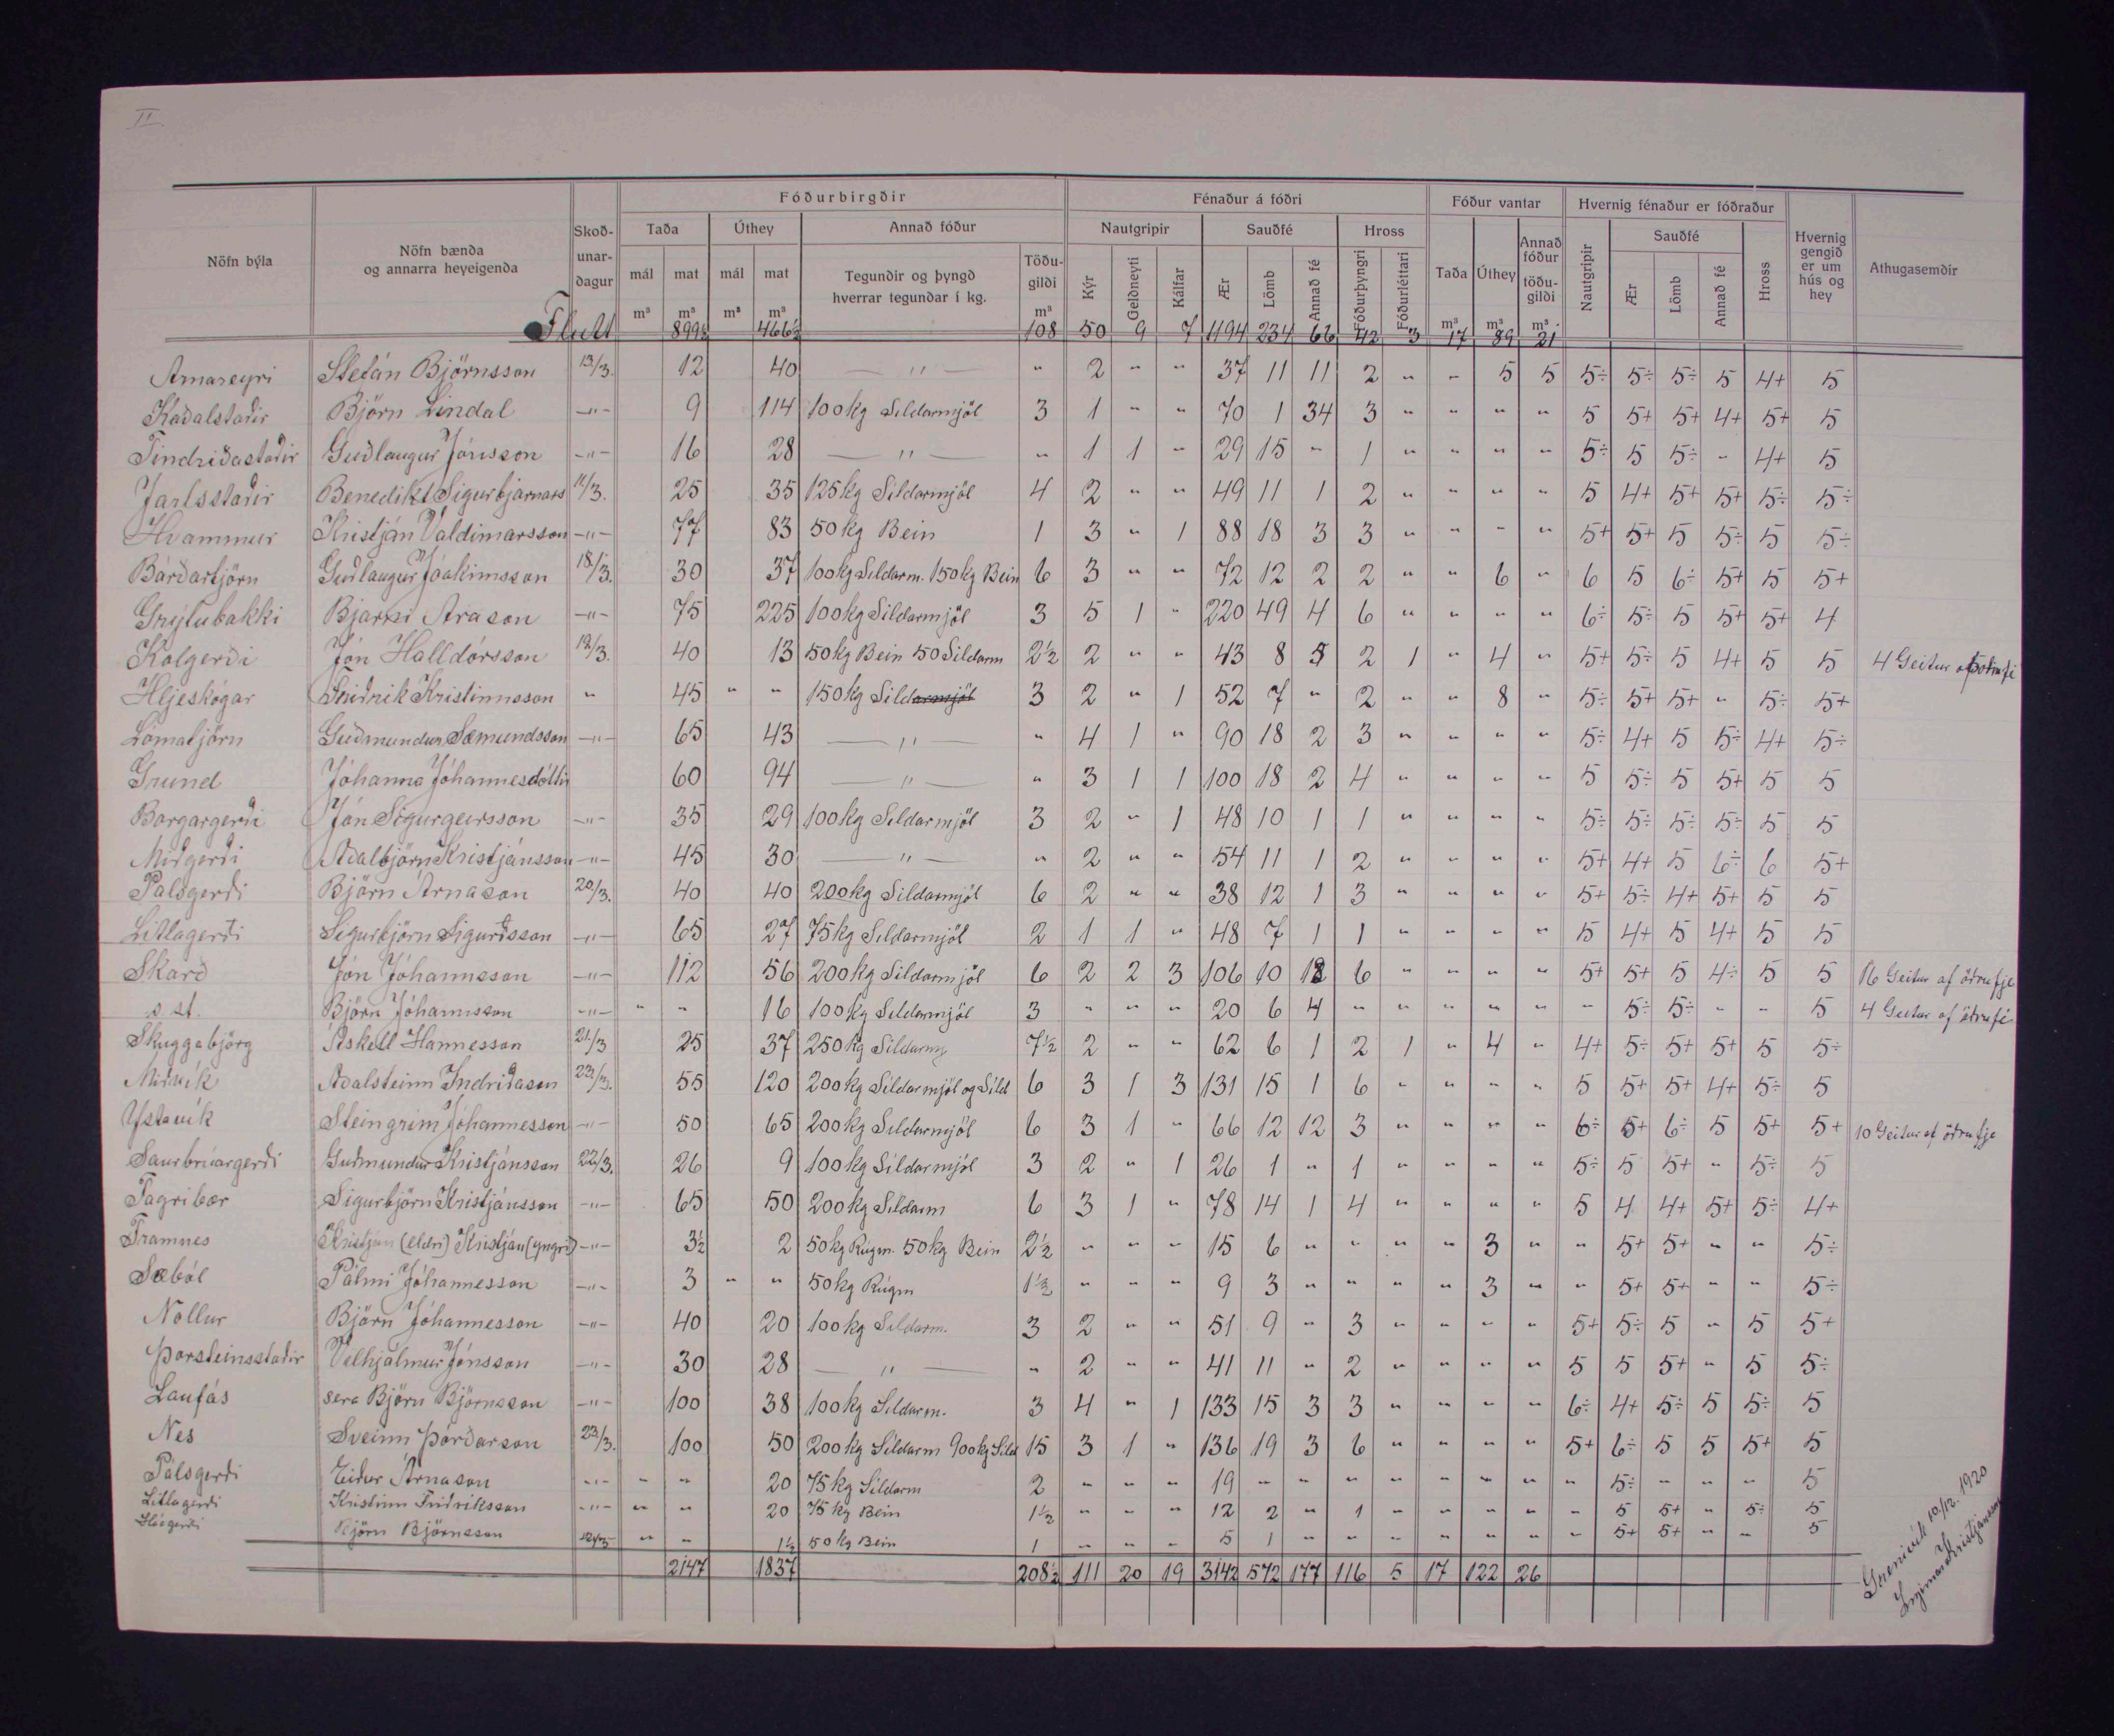 II
Fóðurbirgðir Fénaður á fóðri Fóður vantar Hvernig fénaður er fóðraður
Nöfn býla Nöfn bænda og annarra heyeigenda Skoð-unar-dagur Taða Úthey Annað fóður Nautgripir Sauðfé Hross Taða Úthey Annað fóður töðu-gildi Nautgripir Sauðfé Hross Hvernig gengið er um hús og hey Athugasemdir
mál mat mál mat Tegundir og þyngd hverrar tegundar í kg. Töðu-gildi Kýr Geldneyti Kálfar Ær Lömb Annað fé Fóðurþyngri Fóðurléttari Ær Lömb Annað fé
m³ m³ m³ m³ m³ m³ m³ m³
Flutt 899½ 466½ 108 50 9 7 1194 234 66 42 3 17 89 21
Arnareyri Stefán Björnsson 13/3. 12 40 — " — " 2 " " 37 11 11 2 " " 5 5 5÷ 5÷ 5÷ 5 4+ 5
Kaðalstaðir Björn Líndal —"— 9 114 100 kg Síldarmjöl 3 1 " " 70 1 34 3 " " " " 5 5+ 5+ 4+ 5+ 5
Tindriðastaðir Guðlaugur Jónsson —"— 16 28 — " — " 1 1 " 29 15 " 1 " " " " 5÷ 5 5÷ " 4+ 5
Jarlsstaðir Benedikt Sigurbjarnars 11/3. 25 35 125 kg Síldarmjöl 4 2 " " 49 11 1 2 " " " " 5 4+ 5+ 5+ 5÷ 5÷
Hvammur Kristján Valdimarsson —"— 77 83 50 kg Bein 1 3 " 1 88 18 3 3 " " " " 5+ 5+ 5 5÷ 5 5÷
Bárðartjörn Guðlaugur Jóakimsson 18/3. 30 37 100 kg Síldarm. 150 kg Bein 6 3 " " 72 12 2 2 " " 6 " 6 5 6÷ 5+ 5 5+
Grýtubakki Bjarni Arason —"— 75 225 100 kg Síldarmjöl 3 5 1 " 220 49 4 6 " " " " 6÷ 5÷ 5 5+ 5+ 4
Kolgerði Jón Halldórsson 19/3. 40 13 50 kg Bein 50 Síldarm 2½ 2 " " 43 8 5 2 1 " 4 " 5+ 5÷ 5 4+ 5 5 4 Geitur af
Hljeskógar Friðrik Kristinnsson " 45 " " 150 kg Síldarmjöl 3 2 " 1 52 7 " 2 " " 8 " 5÷ 5+ 5+ " 5÷ 5+
Lómatjörn Guðmundur Sæmundsson —"— 65 43 — " — " 4 1 " 90 18 2 3 " " " " 5÷ 4+ 5 5÷ 4+ 5÷
Grund Jóhanna Jóhannesdóttir 60 94 — " — " 3 1 1 100 18 2 4 " " " " 5 5÷ 5 5+ 5 5
Borgargerði Jón Sigurgeirsson —"— 35 29 100 kg Síldarmjöl 3 2 " 1 48 10 1 1 " " " " 5÷ 5÷ 5÷ 5÷ 5 5
Miðgerði Aðalbjörn Kristjánsson —"— 45 30 — " — " 2 " " 54 11 1 2 " " " " 5+ 4+ 5 6÷ 6 5+
Pálsgerði Björn Árnason 20/3. 40 40 200 kg Síldarmjöl 6 2 " " 38 12 1 3 " " " " 5+ 5÷ 4+ 5+ 5 5
Litlagerði Sigurbjörn Sigurðsson —"— 65 27 75 kg Síldarmjöl 2 1 1 " 48 7 1 1 " " " " 5 4+ 5 4+ 5 5
Skarð Jón Jóhannsson —"— 112 56 200 kg Síldarmjöl 6 2 2 3 106 10 18 6 " " " " 5+ 5+ 5 4÷ 5 5 16 Geitur af öðrufje
s. st. Björn Jóhannsson —"— " " 16 100 kg Síldarmjöl 3 " " " 20 6 4 " " " " " " 5÷ 5÷ " " 5 4 Geitur af öðrufé
Skuggabjörg Áskell Hannesson 21/3 25 37 250 kg Síldarmj 7½ 2 " " 62 6 1 2 1 " 4 " 4+ 5÷ 5+ 5+ 5 5÷
Miðvík Aðalsteinn Indriðason 22/3. 55 120 200 kg Síldarmjöl og Síld 6 3 1 3 131 15 1 6 " " " " 5 5+ 5+ 4+ 5÷ 5
Ystavík Steingrím Jóhannesson —"— 50 65 200 kg Síldarmjöl 6 3 1 " 66 12 12 3 " " " " 6÷ 5+ 6÷ 5 5+ 5+ 10 Geitur af öðrufje
Saurbrúargerði Guðmundur Kristjánsson 22/3. 26 9 100 kg Síldarmjöl 3 2 " 1 26 1 " 1 " " " " 5÷ 5 5+ " 5÷ 5
Fagribær Sigurbjörn Kristjánsson —"— 65 50 200 kg Síldarm 6 3 1 " 78 14 1 4 " " " " 5 4 4+ 5+ 5÷ 4+
Framnes Kristján (eldri) Kristján (yngri) —"— 3½ 2 50 kg Rúgm. 50 kg Bein 2½ " " " 15 6 " " " " 3 " " 5+ 5+ " " 5÷
Sæból Pálmi Jóhannesson —"— 3 " " 50 kg Rúgm 1½ " " " 9 3 " " " " 3 " " 5+ 5+ " " 5÷
Nollur Björn Jóhannesson —"— 40 20 100 kg Síldarm. 3 2 " " 51 9 " 3 " " " " 5+ 5÷ 5 " 5 5+
Þorsteinsstaðir Vilhjálmur Jónsson —"— 30 28 — " — " 2 " " 41 11 " 2 " " " " 5 5 5+ " 5 5÷
Laufás sera Björn Björnsson —"— 100 38 100 kg Síldarm. 3 4 " 1 133 15 3 3 " " " " 6÷ 4+ 5÷ 5 5÷ 5
Nes Sveinn Þórðarson 23/3. 100 50 200 kg Síldarm 900 kg Síld 15 3 1 " 136 19 3 6 " " " " 5+ 6÷ 5 5 5+ 5
Pálsgerði Eiður Árnason —"— " " 20 75 kg Síldarm 2 " " " 19 " " " " " " " " 5÷ " " " 5
Litlagerði Kristinn Friðriksson —"— " " 20 75 kg Bein 1½ " " " 12 2 " 1 " " " " " 5 5+ " 5÷ 5
Björn Björnsson " " 1½ 50 kg Bein 1 " " " 5 1 " " " " " " " 5+ 5+ " " 5
2147 1837 208½ 111 20 19 3142 572 177 116 5 17 122 26
Grenivík 10/12. 1920
Ingimar Kristjánsson